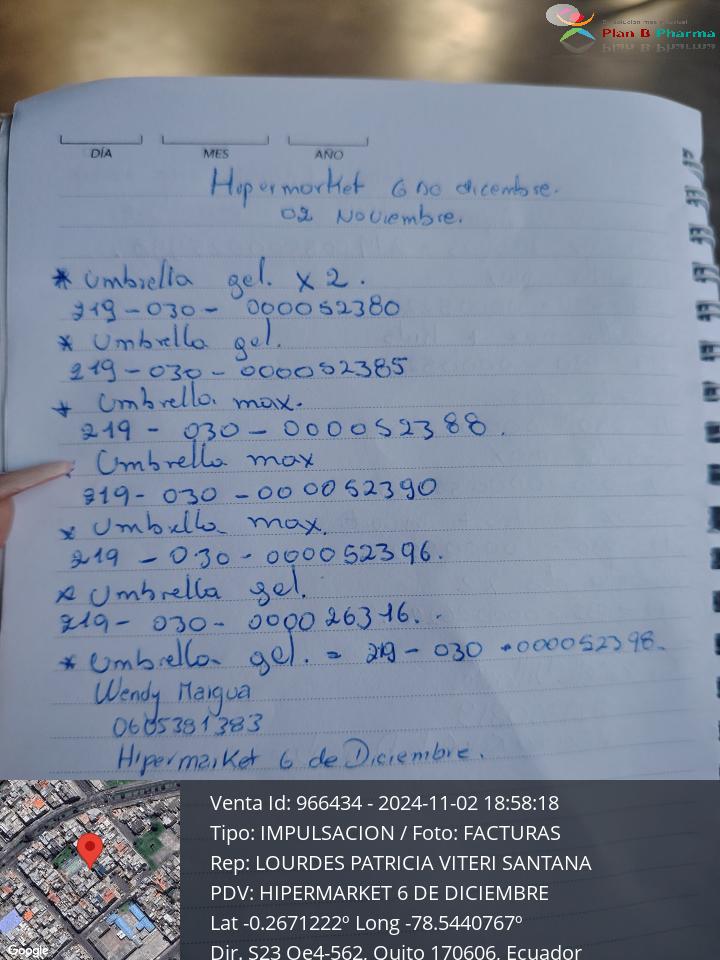 Plan B Pharma
DÍA MES AÑO
Hipermarket 6 de dicembre.
02 Noviembre.
* Umbrella gel. x 2.
219-030-000052380
* Umbrella gel.
219-030-000052385
* Umbrella max.
219-030-000052388.
Umbrella max
219-030-000052390
* Umbrella max.
219-030-000052396.
* Umbrella gel.
219-030-000026316.
* Umbrella gel. = 219-030-000052398.
Wendy Maigua
0605381383
Hipermarket 6 de Diciembre.
Venta Id: 966434 - 2024-11-02 18:58:18
Tipo: IMPULSACION / Foto: FACTURAS
Rep: LOURDES PATRICIA VITERI SANTANA
PDV: HIPERMARKET 6 DE DICIEMBRE
Lat -0.2671222º Long -78.5440767º
Dir. S23 Oe4-562, Quito 170606, Ecuador
Google